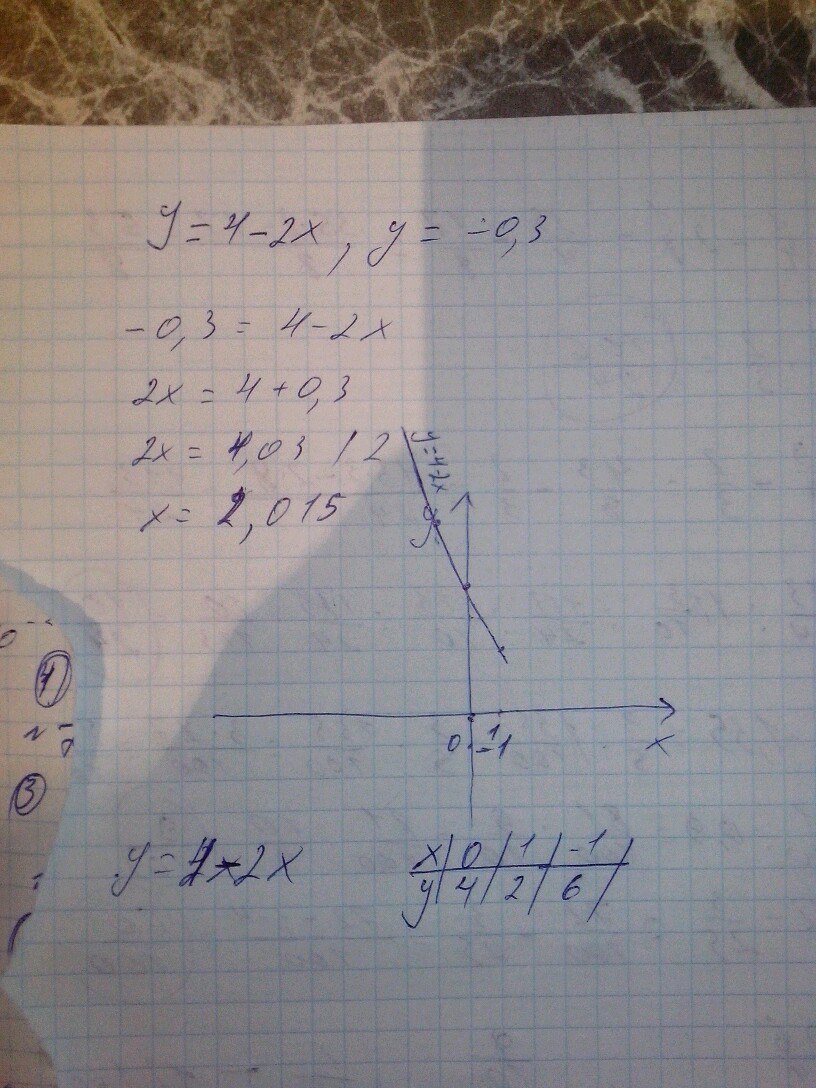 y = 4 - 2x, y = -0,3
-0,3 = 4 - 2x
2x = 4 + 0,3
2x = 4,03 / 2
x = 2,015
y=4-2x
y
0 1
-1
x
y = 4 - 2x
x | 0 | 1 | -1 |
y | 4 | 2 | 6 |
4
3